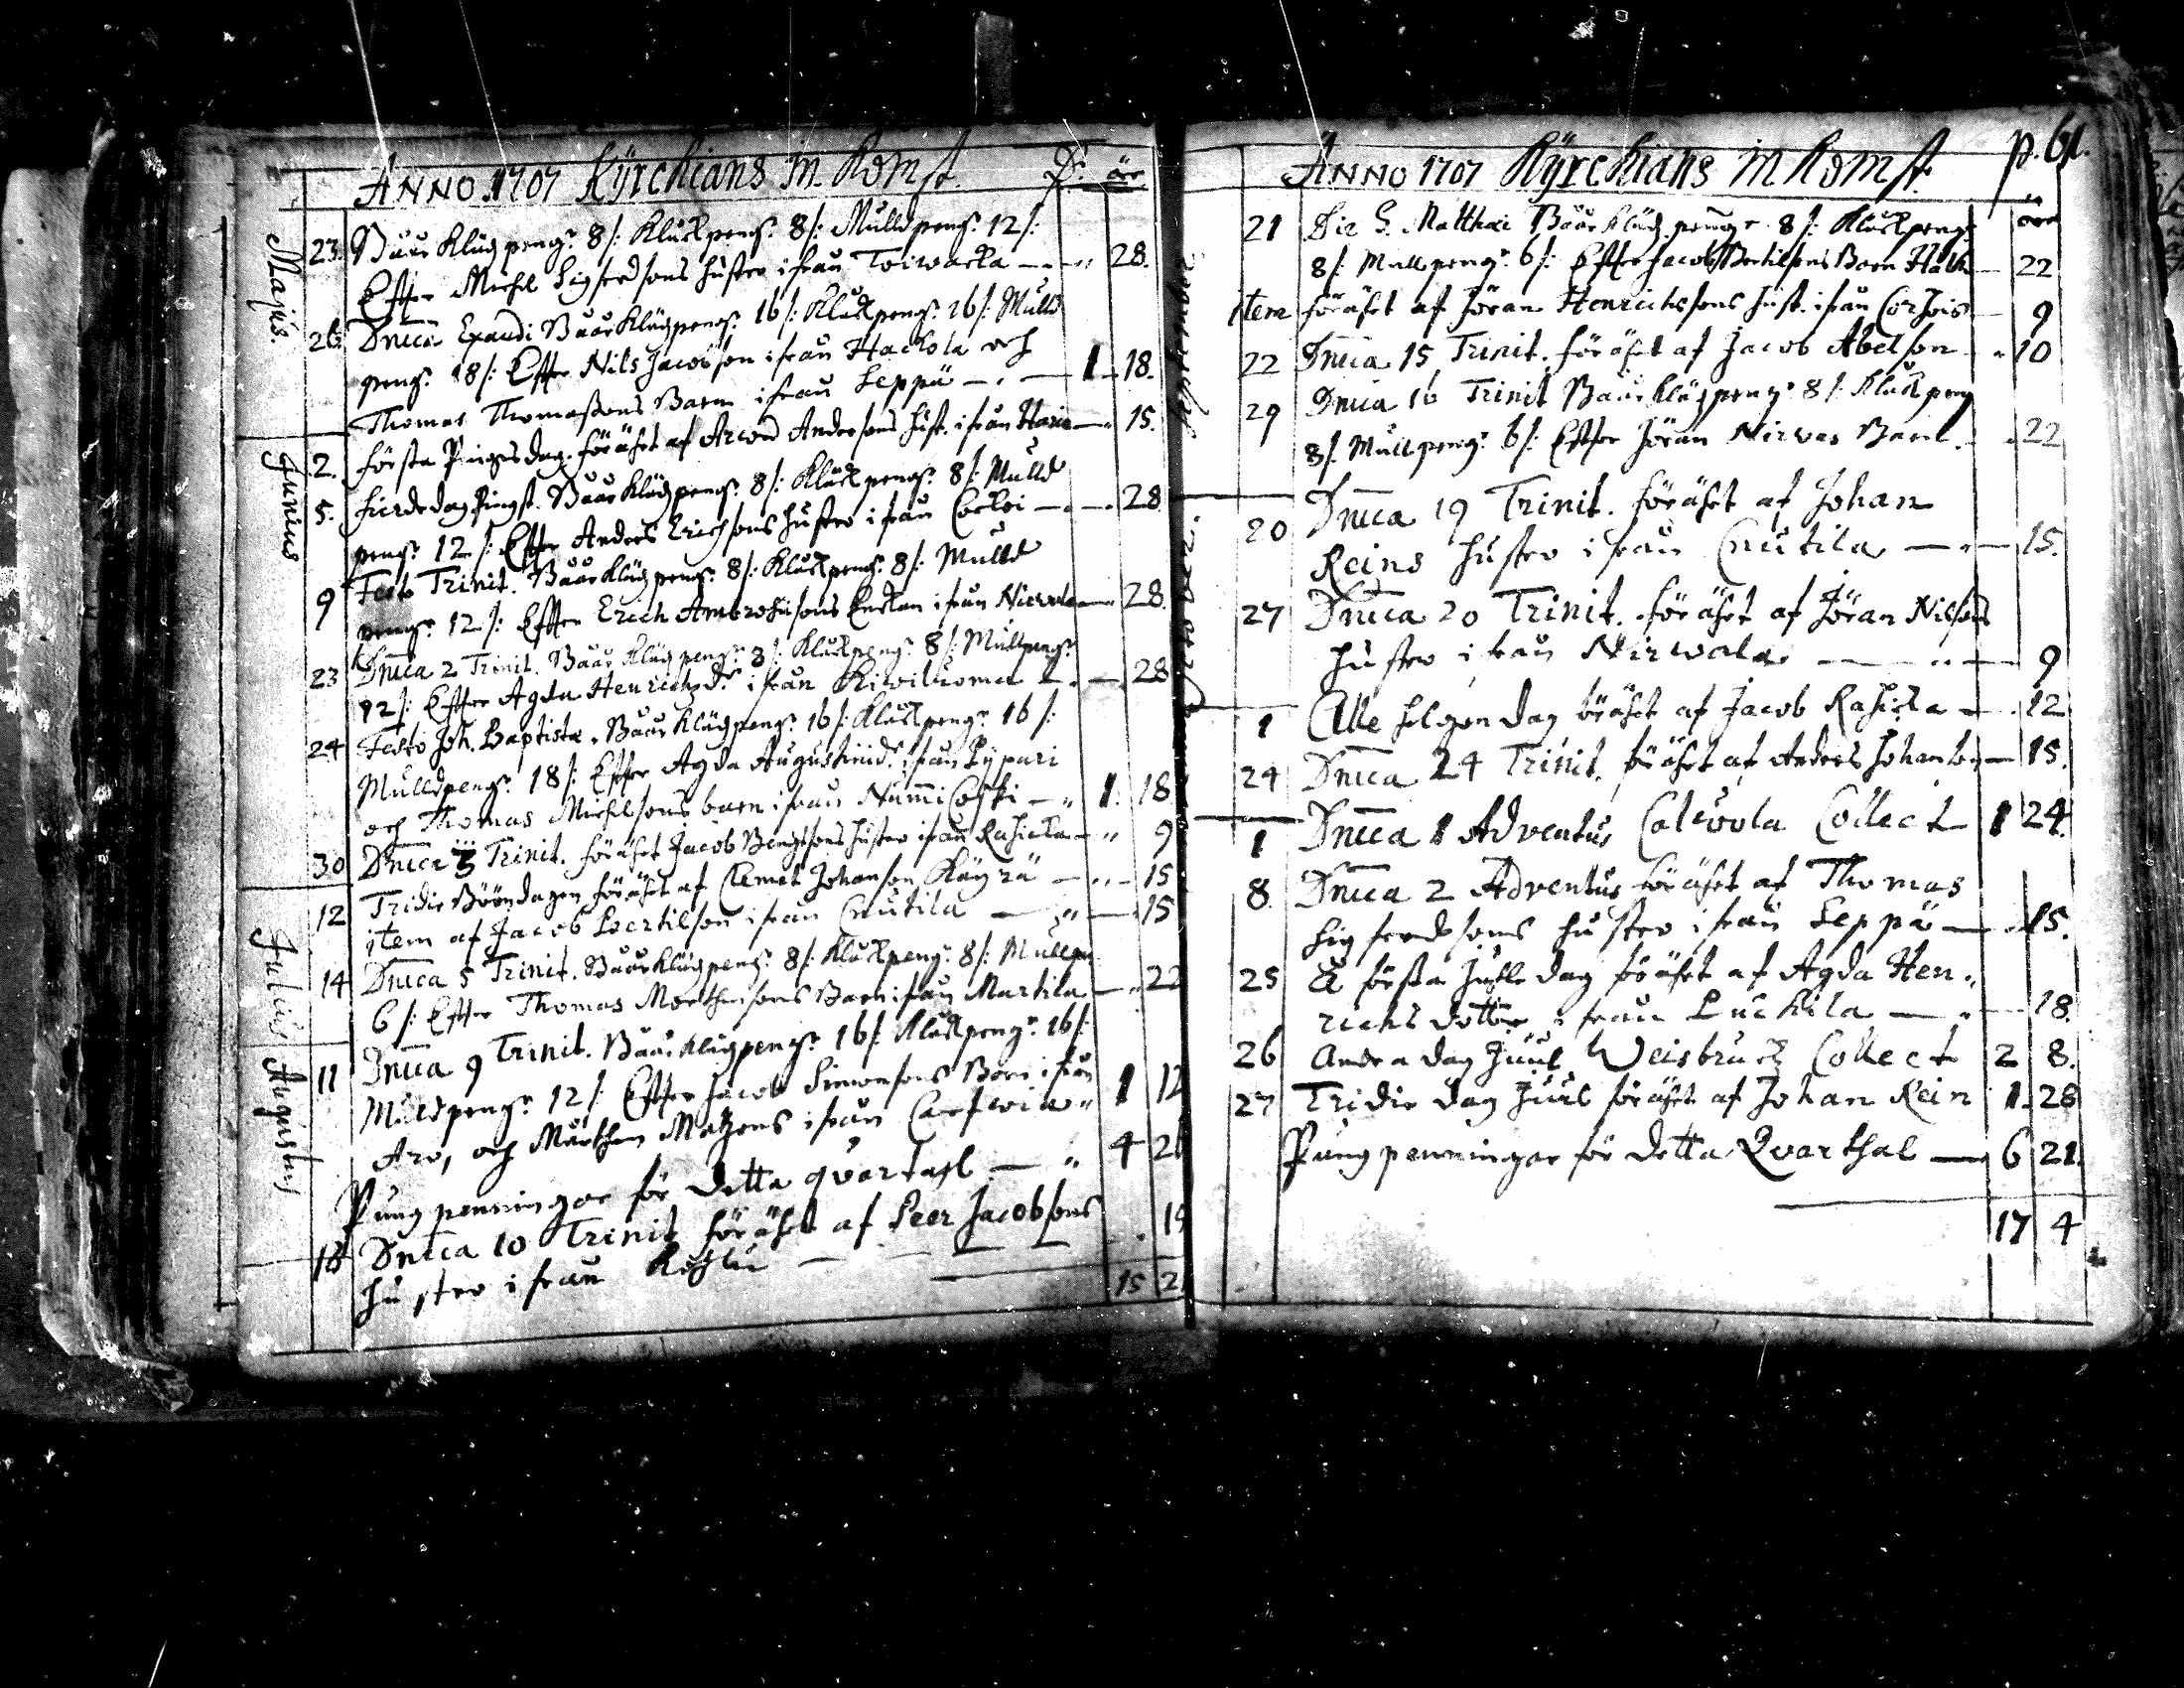 ANNO 1707 Kÿrckians In Komst. D: ör
Majus.
23. Båår Kläg peng: 8/: Klåck peng: 8/: Mulld peng: 12/:
Efter Michel Sigfredsons hustro ifrån Toiwacka — „ 28.
26. Dnica Exaudi Båår Kläg peng: 16/: Klåck peng: 16/: Mulld
peng: 18/: Efter Nils Jacobson ifrån Hackola och
Thomas Thomassons Barn ifrån Seppä — 1 18.
Junius
2. första Pingesdag. förährt af Arwed Andersons hust. ifrån — 15.
5. fierde dag Pingst. Båår Kläg peng: 8/: Klåck peng: 8/: Mulld
peng: 12/: Efter Anders Erichsons hustro ifrån Cockoi — 28
9 Festo Trinit. Båår Kläg peng: 8/: Klåck peng: 8/: Mulld
peng: 12/: Efter Erich Ambrosiusons Enckan ifrån Nirwala — 28.
23 Dnica 2 Trinit. Båår Kläg peng: 8/: Klåck peng: 8/: Mull peng:
12/: Efter Agda Henrichsd: ifrån Kiwiluoma — 28
24 Festo Joh. Baptistæ. Båår Kläg peng: 16/: Klåck peng: 16/:
Mulld peng: 18/: Efter Agda Augustind: ifrån Pypari
och Thomas Michelsons barn ifrån Nummi — „ 1. 18
30 Dnica 3 Trinit. förährt Jacob Bengtsons hustro ifrån Rahicka — „ 9
Julius
12 Tridie Böön dagen förährt af Clemet Johanson Käyrä — 15
item af Jacob Bertilson ifrån Cnutila — „ — 15
14 Dnica 5 Trinit. Båår Kläg peng: 8/: Klåck peng: 8/: Mull
6/: Efter Thomas Morthensons Barn ifrån Martila — „ 22
Augustus
11 Dnica 9 Trinit. Båår Kläg peng: 16/: Klåck peng: 16/:
Mulld peng: 12/: Efter Jacob Simonsons Barn ifrån
Aro, och Mårthen Matzons ifrån „ 1 12
Pung penningar för detta qvartahl — „ 4 21
18 Dnica 10 Trinit förährt af Peer Jacobsons
hustro ifrån — 19
15 2
ANNO 1707 Kÿrckians In Komst. p. 61.
öre
21 Die S. Matthæi Båår Kläg peng: 8/: Klåck peng:
8/: Mull peng: 6/: Efter Jacob Bertilsons Barn — 22
item förährt af Jöran Henrichssons hust. ifrån Corhois — 9
22 Dnica 15 Trinit. förährt af Jacob Abelson — „ 10
29 Dnica 16 Trinit Båår Kläg peng: 8/: Klåck peng
8/: Mull peng: 6/: Efter Jöran Nirwas Barn — „ 22
20 Dnica 19 Trinit. förährt af Johan
Reins hustro ifrån Cnutila — „ — 15.
27 Dnica 20 Trinit. förährt af Jöran Nilsons
hustro ifrån Nirwala — „ — 9
1 Alle helgon dag förährt af Jacob Rahicka — 12
24 Dnica 24 Trinit. förährt af Anders Johanson — 15.
1 Dnica 1 Adventus Calvola Collect 1 24.
8. Dnica 2 Adventus förährt af Thomas
Sigfredsons hustro ifrån Seppä — 15.
25 A första Juhle dag förährt af Agda Hen„
richs dotter ifrån Luckila — „ — 18.
26 Andra dag Juul Weisbruch Collect 2 8.
27 Tridie dag Juul förährt af Johan Rein 1. 28
Pung penningar för detta Qvarthal — 6 21.
17 4